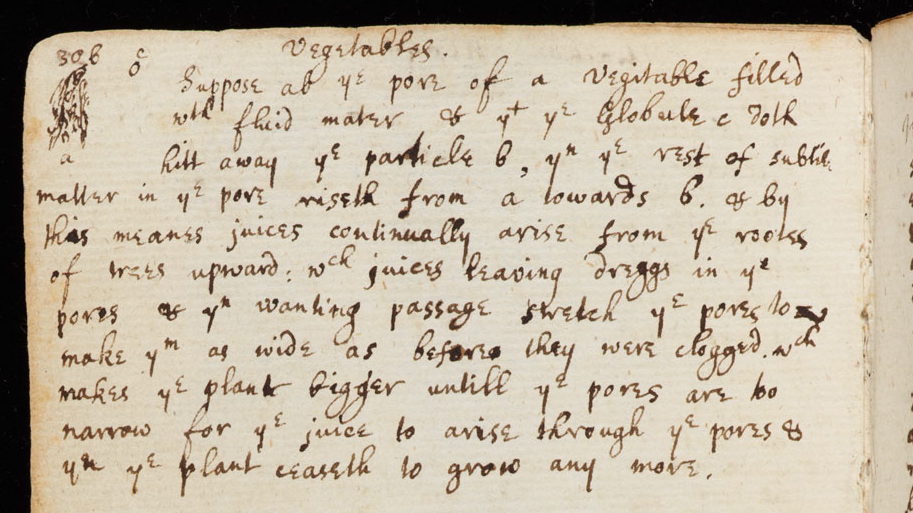 Vegetables.
306 c
o
b
Suppose ab yᵉ pore of a Vegitable filled
wᵗʰ fluid mater & yᵗ yᵉ Globule c doth
a hitt away yᵉ particle b, yⁿ yᵉ rest of subtile
matter in yᵉ pore riseth from a towards b. & by
this meanes juices continually arise from yᵉ rootes
of trees upward: wᶜʰ juices leaving dreggs in yᵉ
pores & yⁿ wanting passage stretch yᵉ pores to
make yᵐ as wide as before they were clogged. wᶜʰ
makes yᵉ plant bigger untill yᵉ pores are too
narrow for yᵉ juice to arise through yᵉ pores &
yⁿ yᵉ plant ceaseth to grow any more.